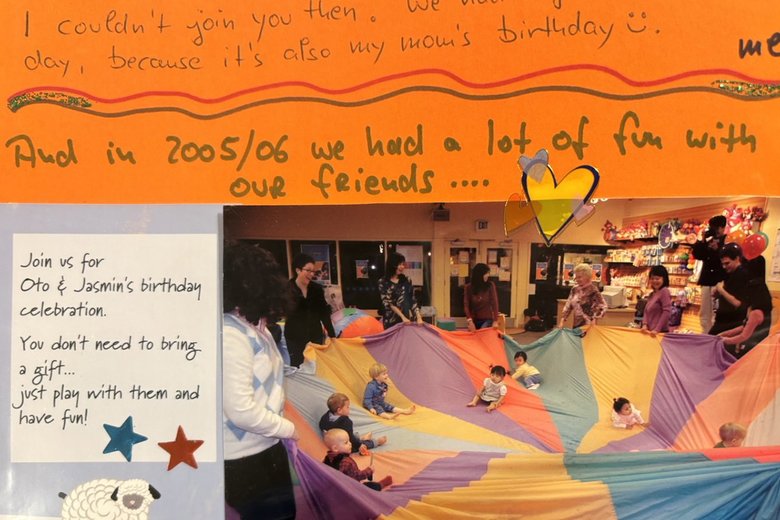 I couldn't join you then. We had
day, because it's also my mom's birthday
me
And in 2005/06 we had a lot of fun with
our friends ....
Join us for
Oto & Jasmin's birthday
celebration.
You don't need to bring
a gift...
just play with them and
have fun!